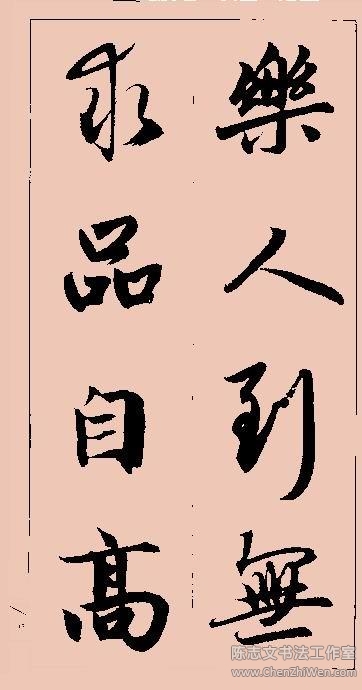 樂人到無
求品自高
陈志文书法工作室
www.ChenZhiWen.cn